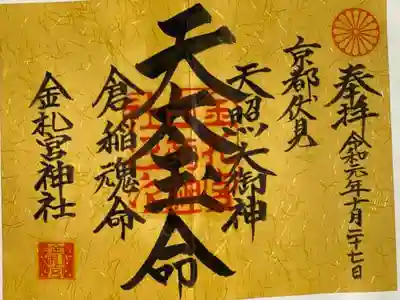 奉拝
令和元年十月二十七日
京都伏見
天照大御神
天太玉命
倉稲魂命
金札宮神社